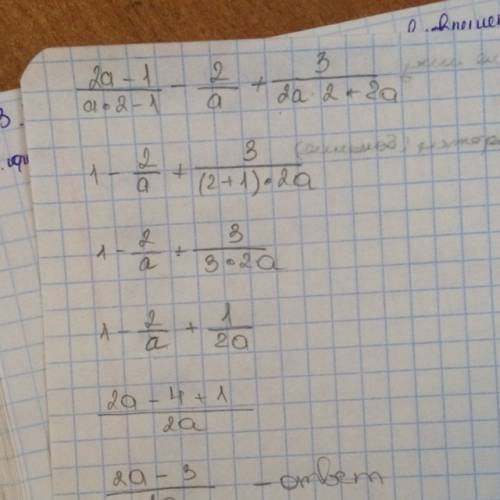 (2a - 1)/(a • 2 - 1) - 2/a + 3/(2a • 2 + 2a)
1 - 2/a + 3/((2+1) • 2a)
1 - 2/a + 3/(3 • 2a)
1 - 2/a + 1/2a
(2a - 4 + 1)/2a
2a - 3 - ответ